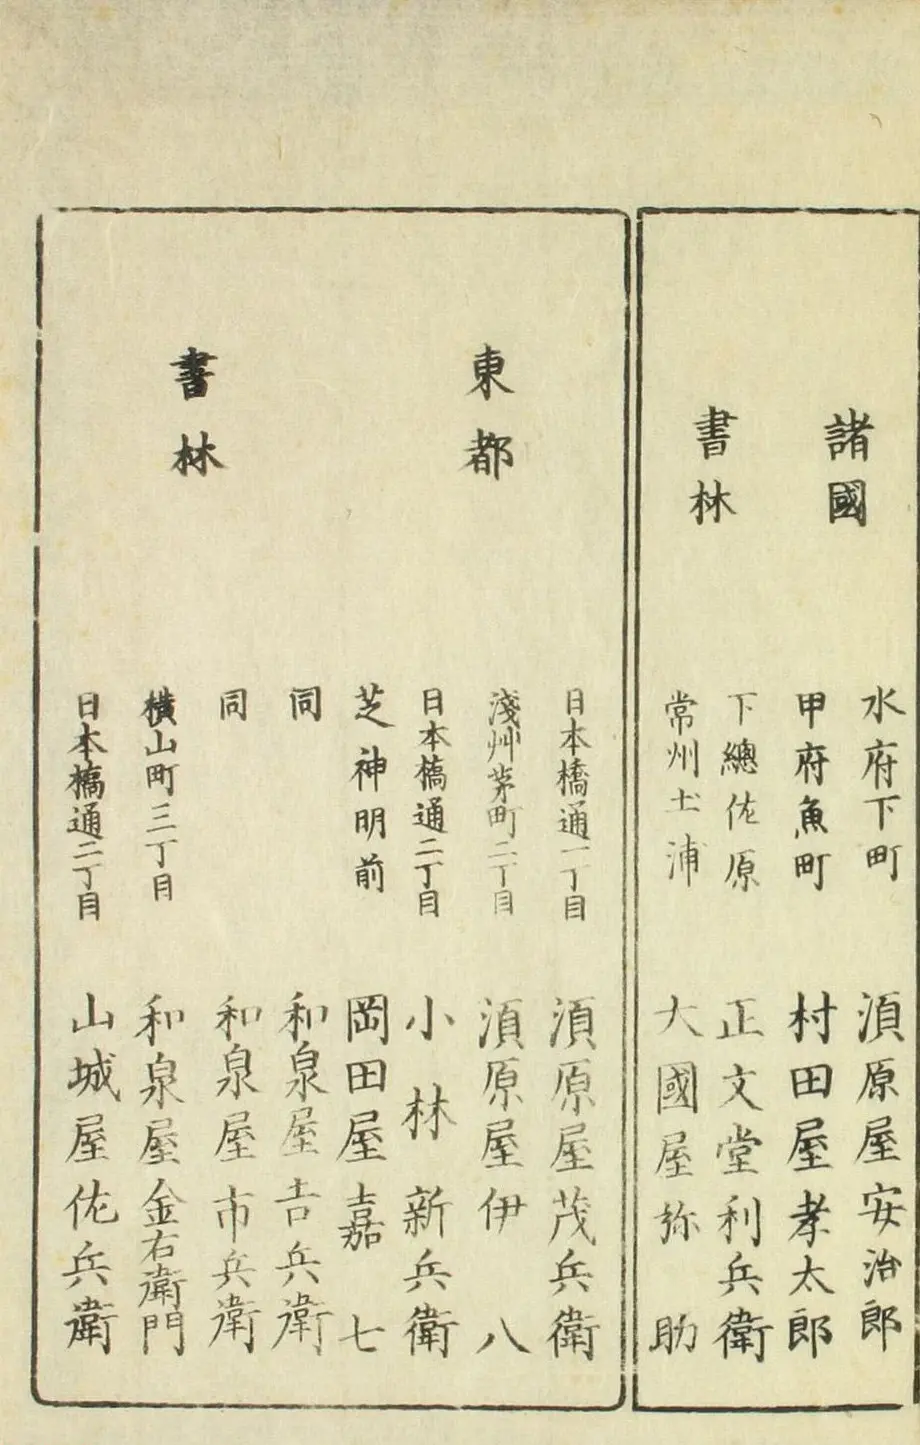 諸國
書林
水府下町　須原屋安治郎
甲府魚町　村田屋孝太郎
下總佐原　正文堂利兵衛
常州土浦　大國屋弥助
東都
書林
日本橋通一丁目　須原屋茂兵衛
淺艸茅町二丁目　須原屋伊八
日本橋通二丁目　小林新兵衛
芝神明前　岡田屋嘉七
同　和泉屋吉兵衛
同　和泉屋市兵衛
横山町三丁目　和泉屋金右衛門
日本橋通二丁目　山城屋佐兵衛